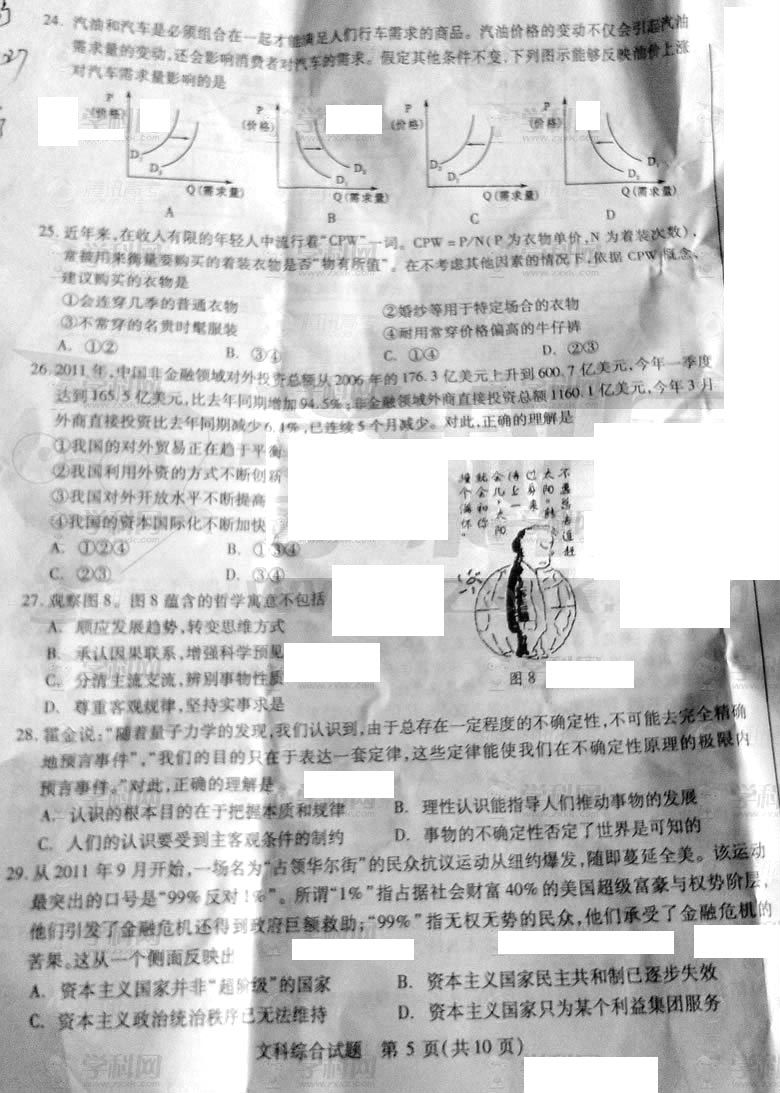 24. 汽油和汽车是必须组合在一起才能满足人们行车需求的商品。汽油价格的变动不仅会引起汽油
需求量的变动,还会影响消费者对汽车的需求。假定其他条件不变,下列图示能够反映油价上涨
对汽车需求量影响的是
P P P P
(价格) (价格) (价格) (价格)
Q(需求量) Q(需求量) Q(需求量) Q(需求量)
A B C D
25. 近年来,在收入有限的年轻人中流行着“CPW”一词。CPW=P/N(P为衣物单价,N为着装次数),
常被用来衡量要购买的着装衣物是否“物有所值”。在不考虑其他因素的情况下,依据CPW概念、
建议购买的衣物是
①会连穿几季的普通衣物 ②婚纱等用于特定场合的衣物
③不常穿的名贵时髦服装 ④耐用常穿价格偏高的牛仔裤
A. ①② B. ③④ C. ①④ D. ②③
26. 2011年,中国非金融领域对外投资总额从2006年的176.3亿美元上升到600.7亿美元,今年一季度
达到165.5亿美元,比去年同期增加94.5%;非金融领域外商直接投资总额1160.1亿美元,今年3月
外商直接投资比去年同期减少6.1%,已连续5个月减少。对此,正确的理解是
①我国的对外贸易正在趋于平衡
②我国利用外资的方式不断创新
③我国对外开放水平不断提高
④我国的资本国际化不断加快
A. ①②④ B. ①③④
C. ②③ D. ③④
27. 观察图8。图8蕴含的哲学寓意不包括
A. 顺应发展趋势,转变思维方式
B. 承认因果联系,增强科学预见
C. 分清主流支流,辨别事物性质
D. 尊重客观规律,坚持实事求是
不愿意去追赶
太阳。转
过身来
待上一
会儿,太阳
就会和你
撞个满怀。
图8
28. 霍金说:“随着量子力学的发现,我们认识到,由于总存在一定程度的不确定性,不可能去完全精确
地预言事件”,“我们的目的只在于表达一套定律,这些定律能使我们在不确定性原理的极限内
预言事件。”对此,正确的理解是
A. 认识的根本目的在于把握本质和规律 B. 理性认识能指导人们推动事物的发展
C. 人们的认识要受到主客观条件的制约 D. 事物的不确定性否定了世界是可知的
29. 从2011年9月开始,一场名为“占领华尔街”的民众抗议运动从纽约爆发,随即蔓延全美。该运动
最突出的口号是“99%反对1%”。所谓“1%”指占据社会财富40%的美国超级富豪与权势阶层,
他们引发了金融危机还得到政府巨额救助;“99%”指无权无势的民众,他们承受了金融危机的
苦果。这从一个侧面反映出
A. 资本主义国家并非“超阶级”的国家 B. 资本主义国家民主共和制已逐步失效
C. 资本主义政治统治秩序已无法维持 D. 资本主义国家只为某个利益集团服务
文科综合试题 第5页(共10页)